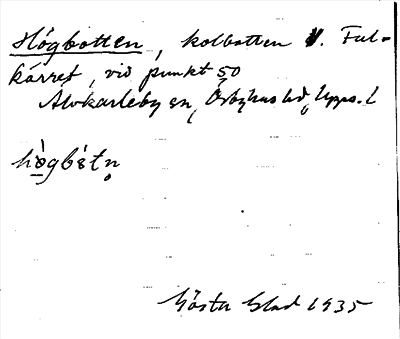 Högbotten, kolbotten V. Ful=
kärret, vid punkt 50
Älvkarleby sn, Örbyhus hd, Upps. l
hò̱gbòtn̥
Gösta Blad 1935